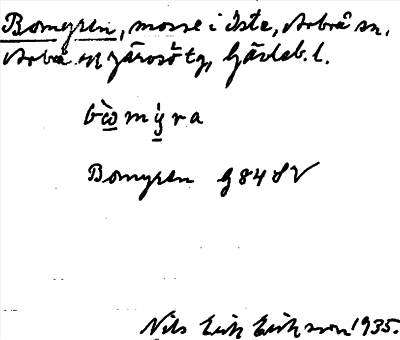 Bomyren, mosse i Iste, Arbrå sn,
Arbrå och Järvsö tg, Gävleb. l.
bò̲m̀y̲ra
Bomyren g 84 SV
Nils Erik Eriksson 1935.